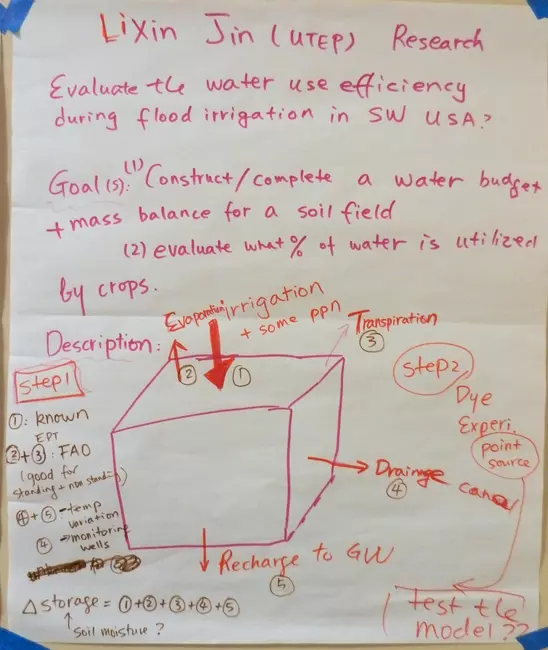 Lixin Jin (UTEP) Research
Evaluate the water use efficiency
during flood irrigation in SW USA?
Goal(s): (1) Construct/complete a water budget
+ mass balance for a soil field
(2) evaluate what % of water is utilized
by crops.
Description:
Evaporation
②
irrigation
+ some ppn
①
Transpiration
③
Step1
①: known
EPT
②+③: FAO
(good for
standing + non standing)
④+⑤ - temp
variation
④ → monitoring
wells
Drainage canal
④
Recharge to GW
⑤
Δ storage = ①+②+③+④+⑤
soil moisture ?
Step2
Dye
Experi.
point
source
test the
model ??